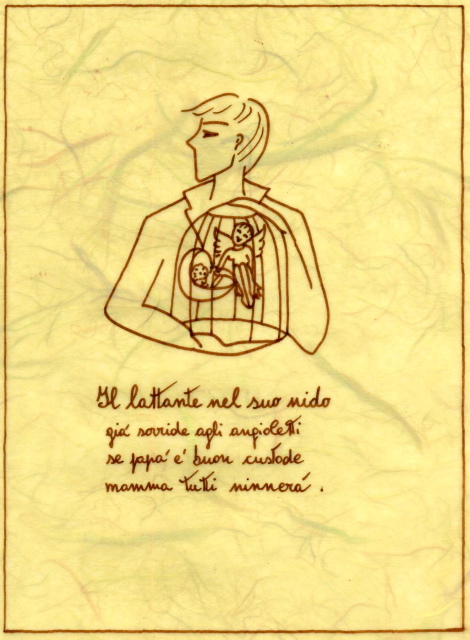 Il lattante nel suo nido
giá sorride agli angioletti
se papá é buon custode
mamma tutti ninnerá.